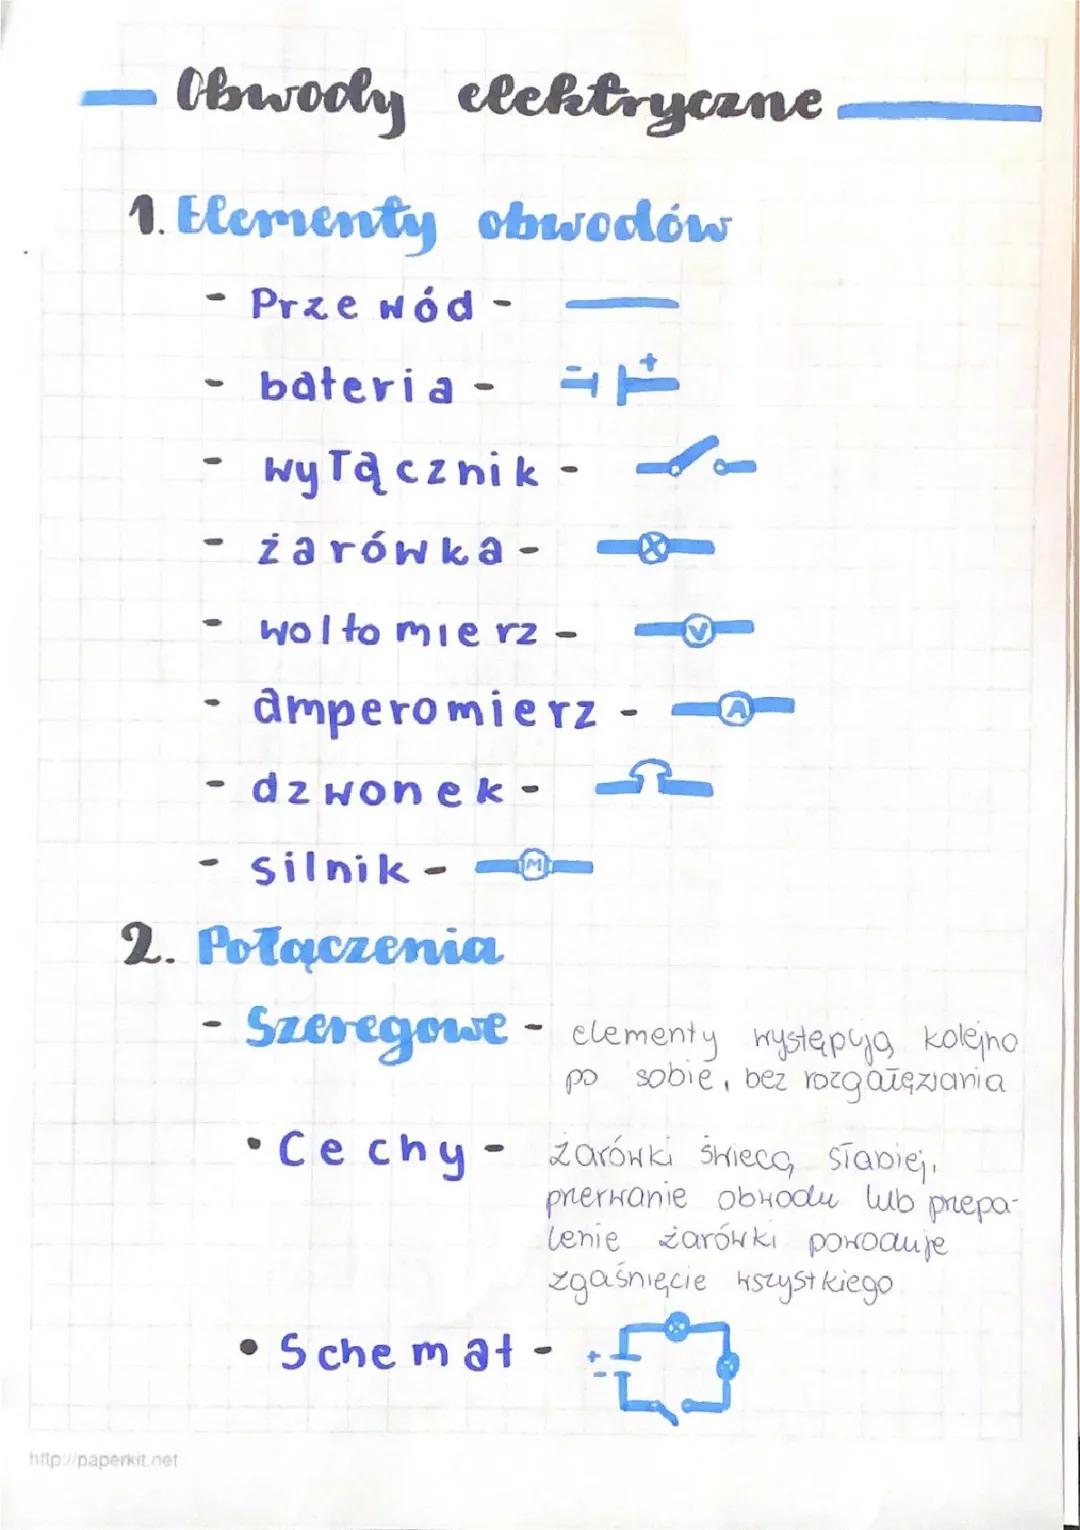 Obwody elektryczne
1. Elementy obwodów
- Przewód -
- bateria - - +
- wyłącznik -
- żarówka -
- woltomierz - V
- amperomierz - A
- dzwonek -
- silnik - M
2. Połączenia
- Szeregowe - elementy występują kolejno
po sobie, bez rozgałęziania
• Cechy - żarówki świecą słabiej,
przerwanie obwodu lub przepa-
lenie żarówki powoduje
zgaśnięcie wszystkiego
• Schemat - + -
http://paperkit.net